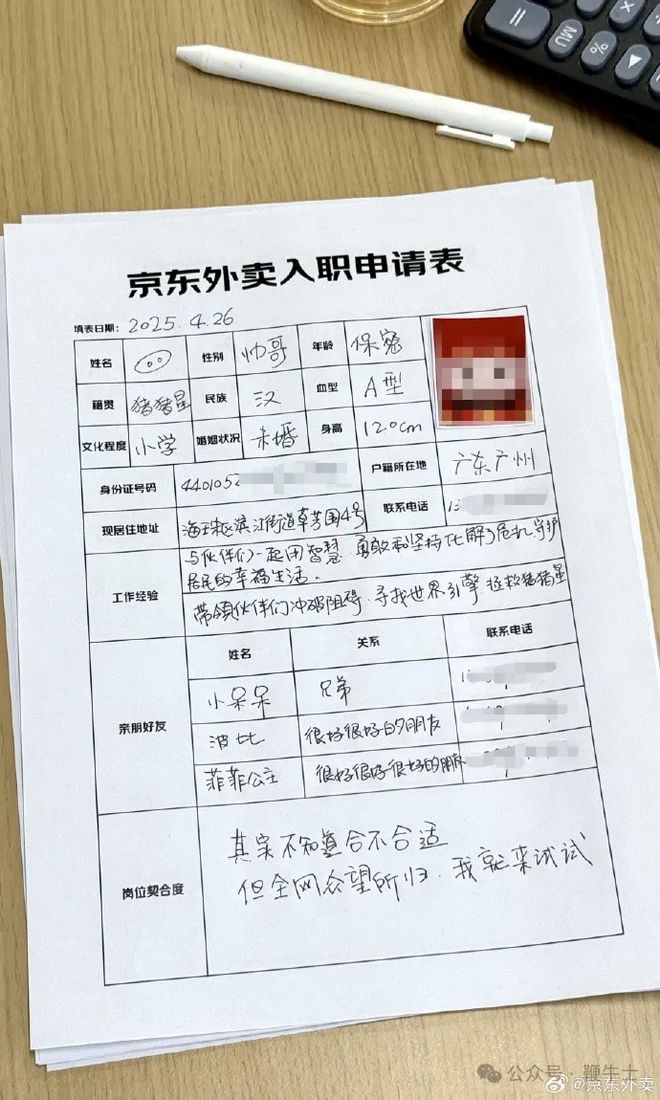 MU
%
京东外卖入职申请表
填表日期：2025.4.26
姓名 性别 帅哥 年龄 保密
籍贯 猪猪星 民族 汉 血型 A型
文化程度 小学 婚姻状况 未婚 身高 120cm
身份证号码 4401052 户籍所在地 广东广州
现居住地址 海珠区滨江街道草芳围4号 联系电话 1
工作经验 与伙伴们一起用智慧、勇敢和坚持化解了危机，守护
居民的幸福生活。
带领伙伴们冲破阻碍，寻找世界引擎，拯救猪猪星
亲朋好友 姓名 关系 联系电话
小呆呆 兄弟 1
波比 很好很好的朋友
菲菲公主 很好很好很好的朋友
岗位契合度 其实不知道合不合适
但全网众望所归，我就来试试
公众号·鞭牛士
@京东外卖